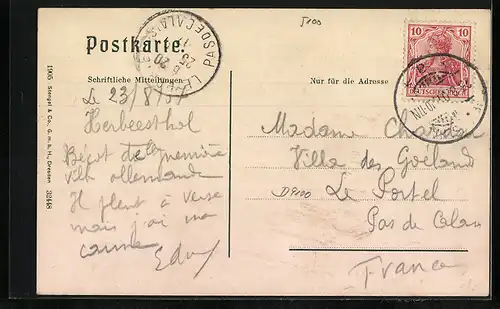 5100
Postkarte.
LE PORTEL PAS DE CALAIS
20
25
10
10
DEUTSCHES REICH
Schriftliche Mitteilungen
Nur für die Adresse
Le 23/8/07
Herbeesthal
Madame
Bépot de la première
Villa des Goëland
ville allemande
D9100
Le Portel
Il pleut à verse
Pas de Calais
mais j'ai ma
canne
France
1905 Stengel & Co., G. m. b. H., Dresden 32448